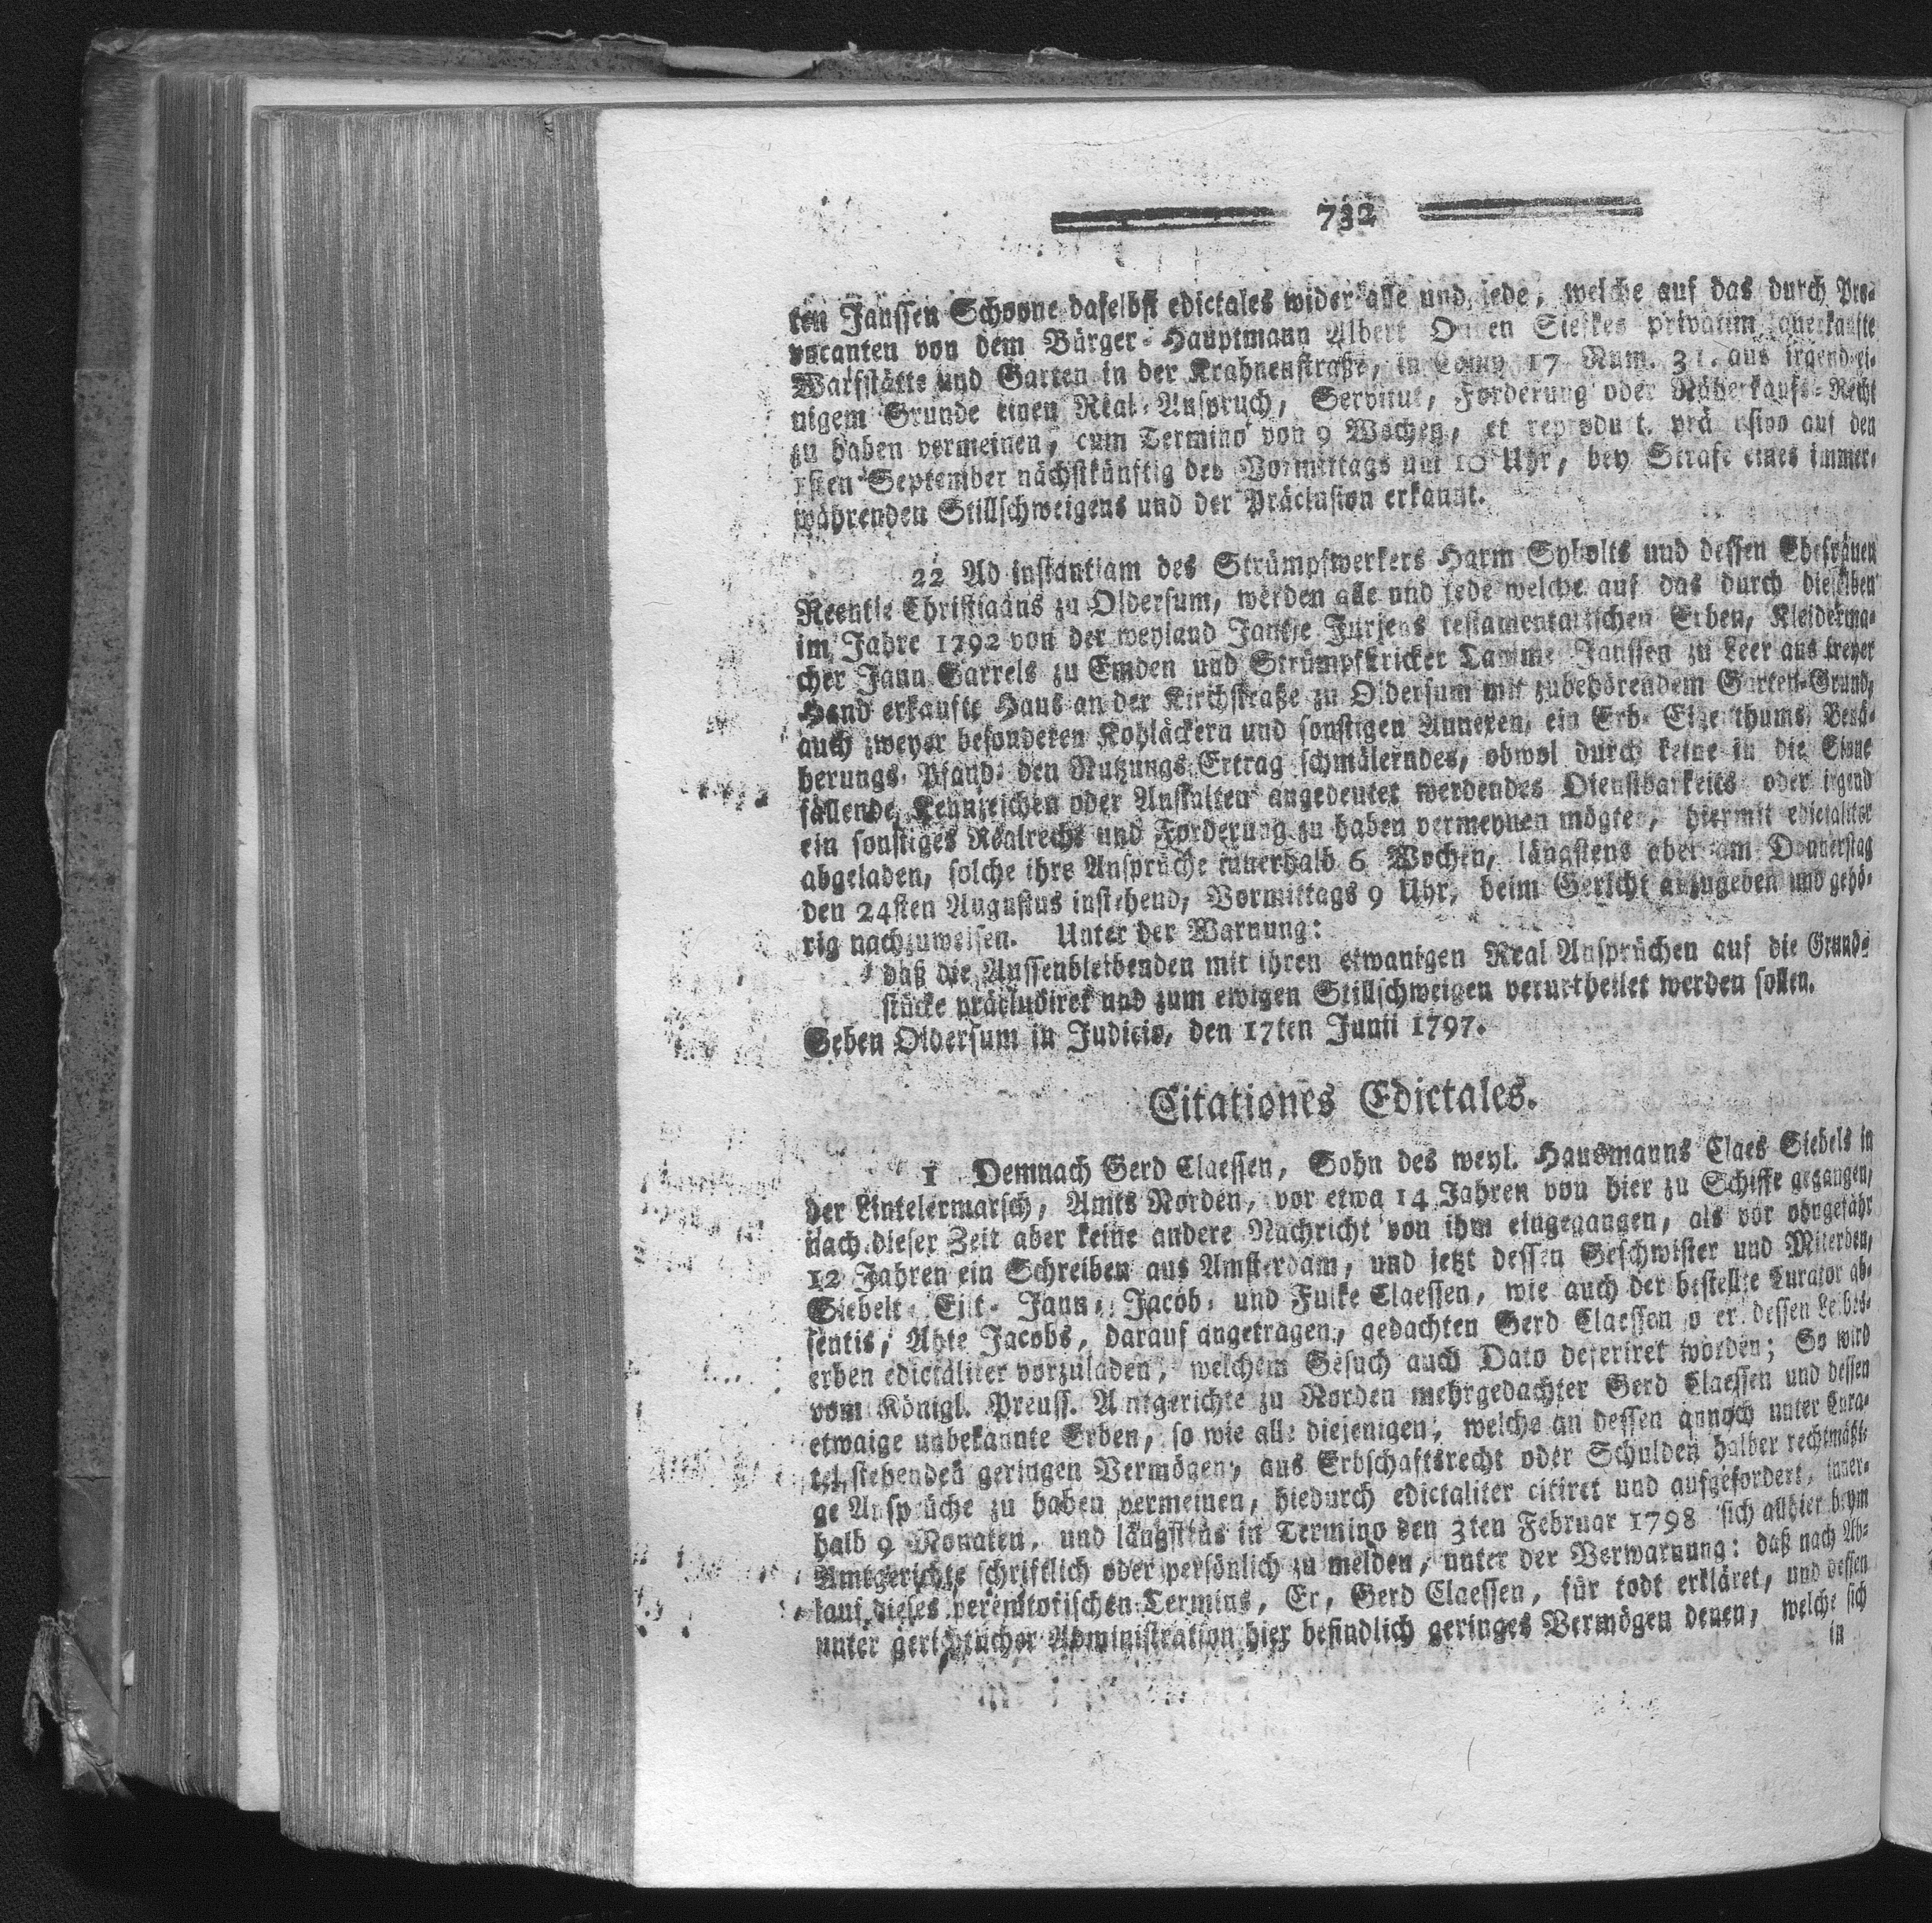 732
ten Janssen Schoone daselbst edictales wider alle und jede, welche auf das durch Pro-
vocanten von dem Bürger-Hauptmann Albert Onnen Siefkes privatim anerkaufte
Warfstätte und Garten in der Krahnenstraße, in Comp 17 Num. 31. aus irgend ei-
nigem Grunde einen Real-Anspruch, Servitut, Forderung oder Näherkaufs-Recht
zu haben vermeinen, cum Termino von 9 Wochen, et reproduct. präclusivo auf den
1sten September nächstkünftig des Vormittags um 10 Uhr, bey Strafe eines immer-
währenden Stillschweigens und der Präclusion erkannt.
22 Ad instantiam des Strümpfwerkers Harm Sybolts und dessen Ehefrauen
Reentje Christiaans zu Oldersum, werden alle und jede welche auf das durch dieselben
im Jahre 1792 von der weyland Jantje Jurjens testamentarischen Erben, Kleiderma-
cher Jann Garrels zu Emden und Strümpfstricker Tamme Janssen zu Leer aus freyer
Hand erkaufte Haus an der Kirchstraße zu Oldersum mit zubehörendem Garten-Grund,
auch zweyer besonderen Kohläckern und sonstigen Annexen, ein Erb- Eigenthums- Benä-
herungs- Pfand- den Nutzungs-Ertrag schmälerndes, obwol durch keine in die Sinne
fallende Kennzeichen oder Anstalten angedeutet werdendes Dienstbarkeits- oder irgend
ein sonstiges Realrecht und Forderung zu haben vermeynen mögten, hiermit edictaliter
abgeladen, solche ihre Ansprüche innerhalb 6 Wochen, längstens aber am Donnerstag
den 24sten Augustus instehend, Vormittags 9 Uhr, beim Gericht anzugeben und gehö-
rig nachzuweisen. Unter der Warnung:
daß die Aussenbleibenden mit ihren etwanigen Real Ansprüchen auf die Grund-
stücke präcludiret und zum ewigen Stillschweigen verurtheilet werden sollen.
Geben Oldersum in Judicio, den 17ten Junii 1797.
Citationes Edictales.
1 Demnach Gerd Claessen, Sohn des weyl. Hausmanns Claes Siebels in
der Lintelermarsch, Amts Norden, vor etwa 14 Jahren von hier zu Schiffe gegangen,
nach dieser Zeit aber keine andere Nachricht von ihm eingegangen, als vor ohngefähr
12 Jahren ein Schreiben aus Amsterdam, und jetzt dessen Geschwister und Miterben,
Siebelt- Eilt- Jann- Jacob- und Fulke Claessen, wie auch der bestellte Curator ab-
sentis, Ahte Jacobs, darauf angetragen, gedachten Gerd Claessen oder dessen Leibes-
erben edictaliter vorzuladen, welchem Gesuch auch Dato deferiret worden; So wird
vom Königl. Preuss. Amtgerichte zu Norden mehrgedachter Gerd Claessen und dessen
etwaige unbekannte Erben, so wie alle diejenigen, welche an dessen annoch unter Cura-
tel stehenden geringen Vermögen, aus Erbschaftsrecht oder Schulden halber rechtmäßi-
ge Ansprüche zu haben vermeinen, hiedurch edictaliter citiret und aufgefordert, inner-
halb 9 Monaten, und längstens in Termino den 3ten Februar 1798 sich allhier beym
Amtgerichte schriftlich oder persönlich zu melden, unter der Verwarnung: daß nach Ab-
lauf dieses peremtorischen Termins, Er, Gerd Claessen, für todt erkläret, und dessen
unter gerichtlicher Administration hier befindlich geringes Vermögen denen, welche sich
in